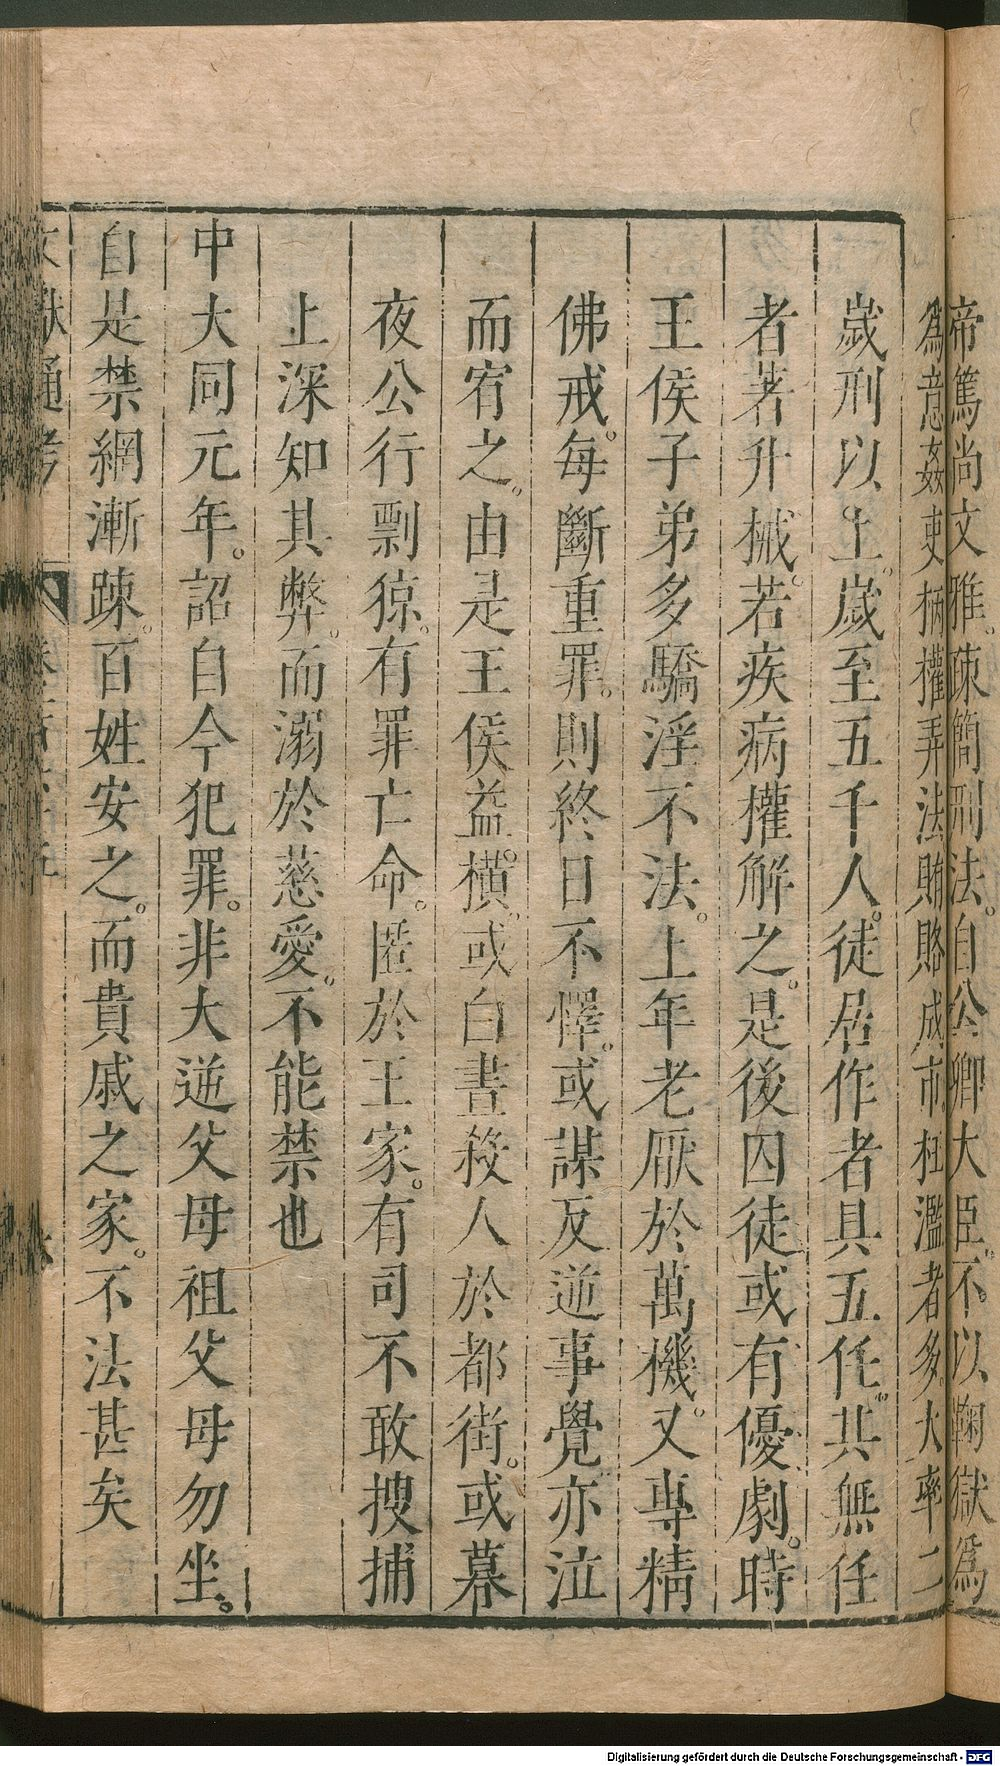 帝篤尚文雅。疎簡刑法。自公卿大臣。不以鞠獄爲
爲意姦吏柄權弄法賄賂成市。枉濫者多。大率二
歲刑以上。歲至五千人。徒居作者具五任。其無任
者著升械。若疾病權解之。是後囚徒或有優劇。時
王侯子弟多驕淫不法。上年老厭於萬機。又專精
佛戒。每斷重罪。則終日不懌。或謀反逆事覺亦泣
而宥之。由是王侯益橫。或白晝殺人於都街。或暮
夜公行剽掠。有罪亡命。匿於王家。有司不敢搜捕
上深知其弊。而溺於慈愛。不能禁也
中大同元年。詔自今犯罪。非大逆父母祖父母勿坐。
自是禁網漸疎。百姓安之。而貴戚之家。不法甚矣
文獻通考
Digitalisierung gefördert durch die Deutsche Forschungsgemeinschaft - DFG